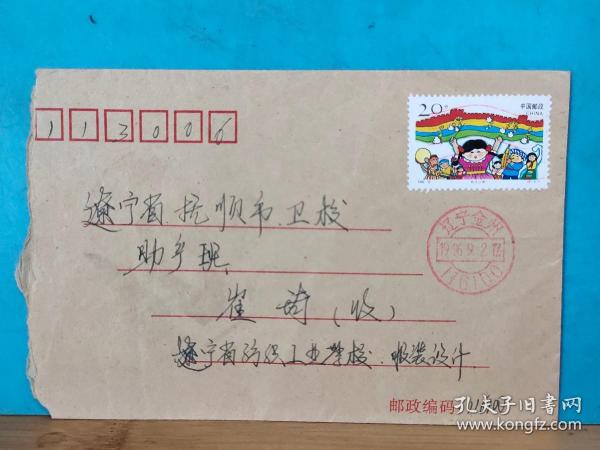 113006
20分
中国邮政
CHINA
辽宁省抚顺市卫校
助产班
崔琦(收)
辽宁金州
1996.9.2
116100
辽宁省纺织工业学校 服装设计
邮政编码
孔夫子旧书网
www.kongfz.com